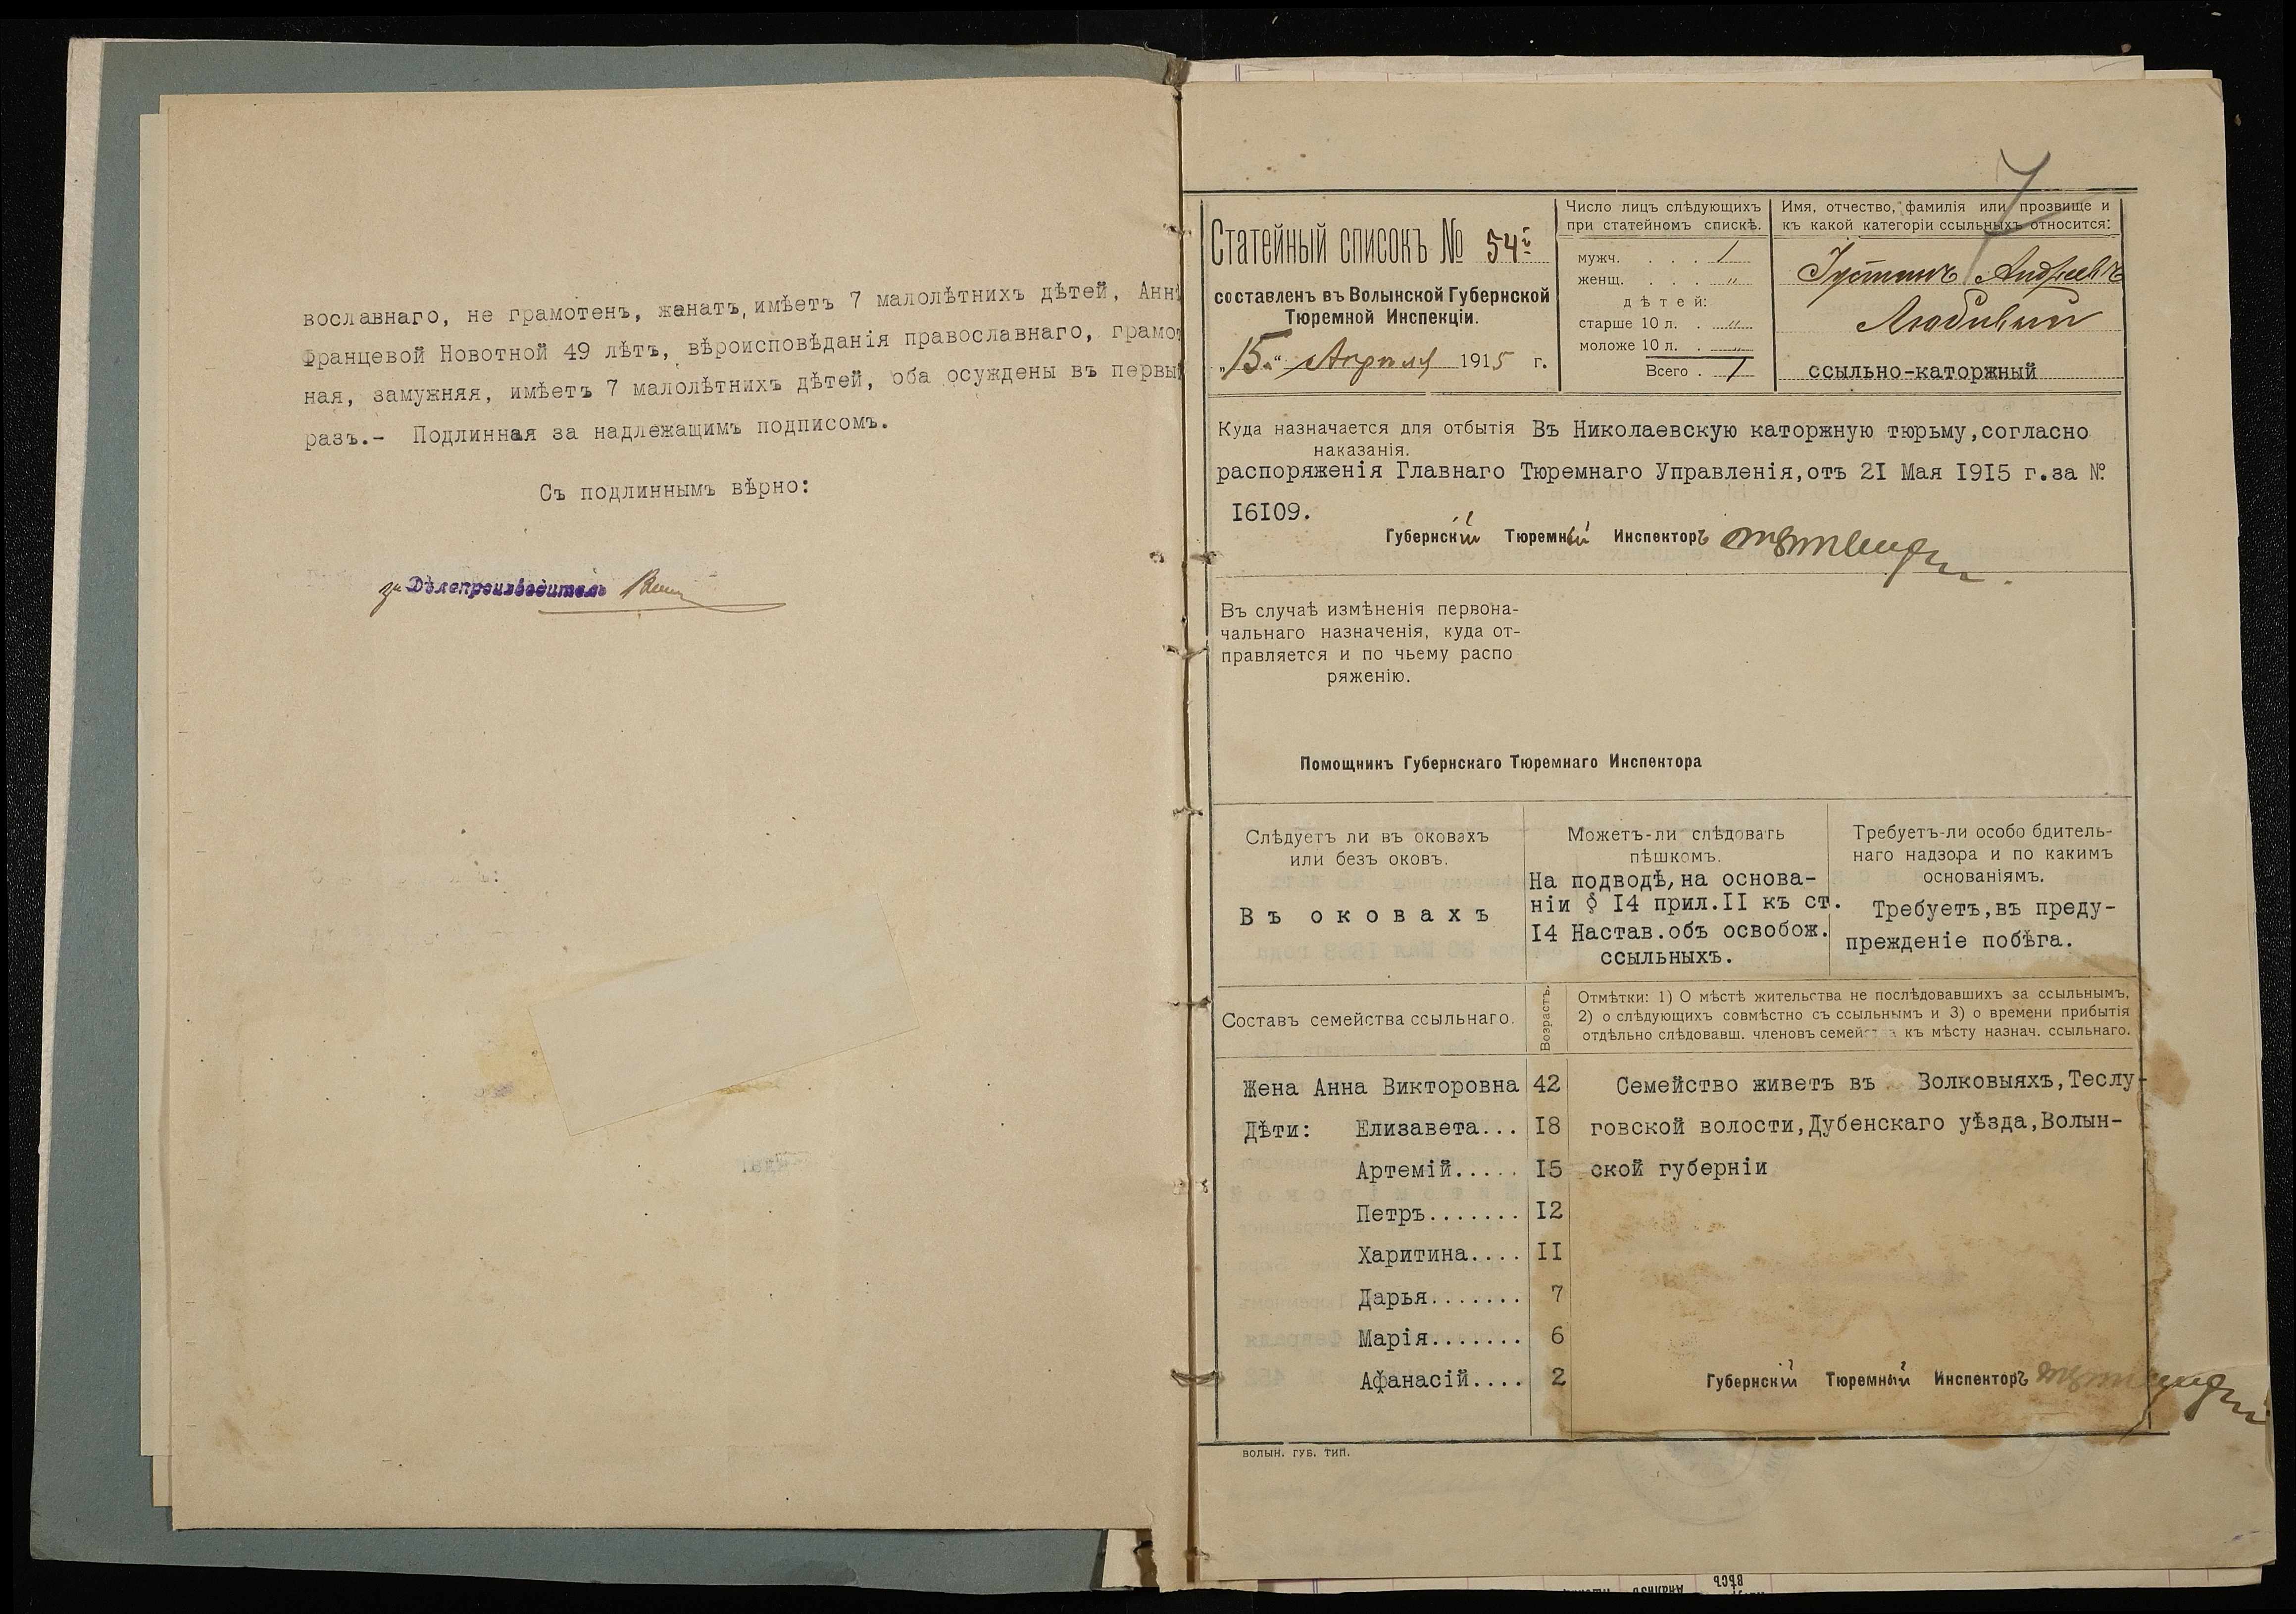 вославнаго, не грамотенъ, женатъ, имѣетъ 7 малолѣтнихъ дѣтей, Анн
Францевой Новотной 49 лѣтъ, вѣроисповѣданія православнаго, грамот
ная, замужняя, имѣетъ 7 малолѣтнихъ дѣтей, оба осуждены въ первый
разъ.- Подлинная за надлежащимъ подписомъ.
Съ подлиннымъ вѣрно:
за Дѣлопроизводитель
7
Статейный списокъ № 54
составленъ въ Волынской Губернской
Тюремной Инспекціи.
„15“ Апрѣля 1915 г.
Число лицъ слѣдующихъ
при статейномъ спискѣ.
мужч. . . . 1
женщ. . . . „
дѣтей:
старше 10 л. . „
моложе 10 л. . „
Всего . 1
Имя, отчество, фамилія или прозвище и
къ какой категоріи ссыльныхъ относится:
Іустинъ Андреевъ
Любивый
ссыльно-каторжный
Куда назначается для отбытія наказанія. Въ Николаевскую каторжную тюрьму,согласно
распоряженія Главнаго Тюремнаго Управленія,отъ 21 Мая 1915 г.за №
16109.
Губернскій Тюремный Инспекторъ
Въ случаѣ измѣненія первона-
чальнаго назначенія, куда от-
правляется и по чьему распо
ряженію.
Помощникъ Губернскаго Тюремнаго Инспектора
Слѣдуетъ ли въ оковахъ
или безъ оковъ.
Въ оковахъ
Можетъ-ли слѣдовать
пѣшкомъ.
На подводѣ,на основа-
ніи § 14 прил.II къ ст.
14 Настав.объ освобож.
ссыльныхъ.
Требуетъ-ли особо бдитель-
наго надзора и по какимъ
основаніямъ.
Требуетъ,въ преду-
прежденіе побѣга.
Составъ семейства ссыльнаго.
Возрастъ.
Отмѣтки: 1) О мѣстѣ жительства не послѣдовавшихъ за ссыльнымъ,
2) о слѣдующихъ совмѣстно съ ссыльнымъ и 3) о времени прибытія
отдѣльно слѣдовавш. членовъ семейства къ мѣсту назнач. ссыльнаго.
Жена Анна Викторовна 42
Дѣти: Елизавета... 18
Артемій..... 15
Петръ....... 12
Харитина.... 11
Дарья....... 7
Марія....... 6
Афанасій.... 2
Семейство живетъ въ Волковыяхъ,Теслу-
говской волости,Дубенскаго уѣзда,Волын-
ской губерніи
Губернскій Тюремный Инспекторъ
ВОЛЫН. ГУБ. ТИП.